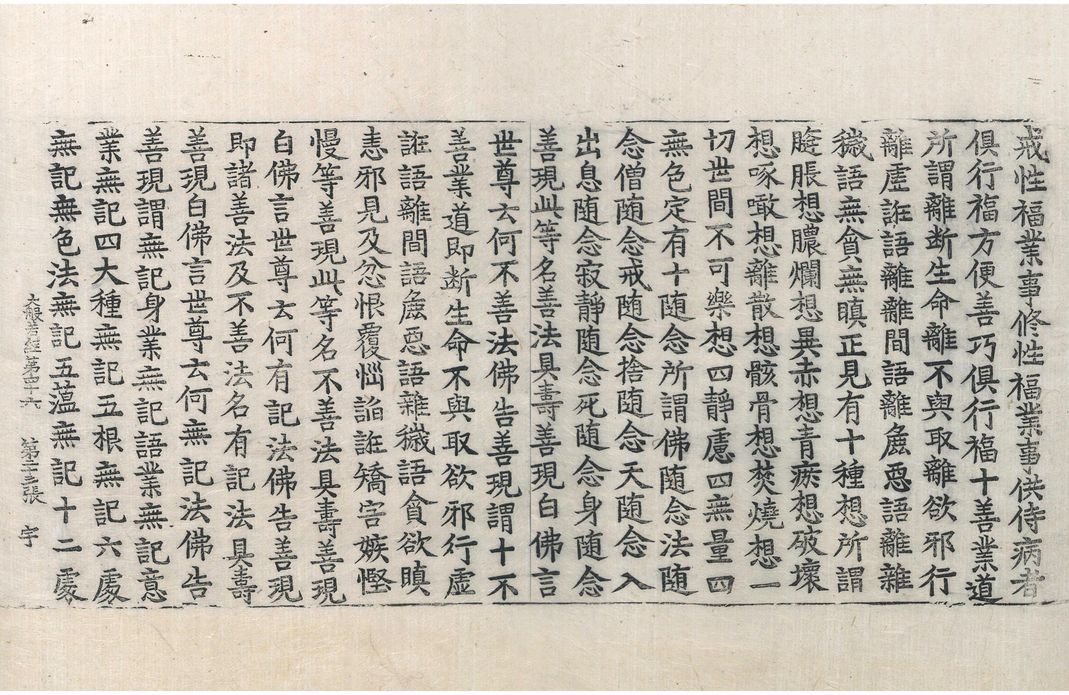 戒性福業事修性福業事供侍病者
俱行福方便善巧俱行福十善業道
所謂離斷生命離不與取離欲邪行
離虛誑語離離間語離麁惡語離雜
穢語無貪無瞋正見有十種想所謂
膖脹想膿爛想異赤想青瘀想破壞
想啄噉想離散想骸骨想焚燒想一
切世間不可樂想四靜慮四無量四
無色定有十随念所謂佛随念法随
念僧随念戒随念捨随念天随念入
出息随念寂靜随念死随念身随念
善現此等名善法具壽善現白佛言
世尊云何不善法佛告善現謂十不
善業道即断生命不與取欲邪行虛
誑語離間語麁惡語雜穢語貪欲瞋
恚邪見及忿恨覆惱諂誑矯害嫉慳
慢等善現此等名不善法具壽善現
白佛言世尊云何有記法佛告善現
即諸善法及不善法名有記法具壽
善現白佛言世尊云何無記法佛告
善現謂無記身業無記語業無記意
業無記四大種無記五根無記六處
無記無色法無記五蘊無記十二處
大般若經第四十六 第二十三張 宇